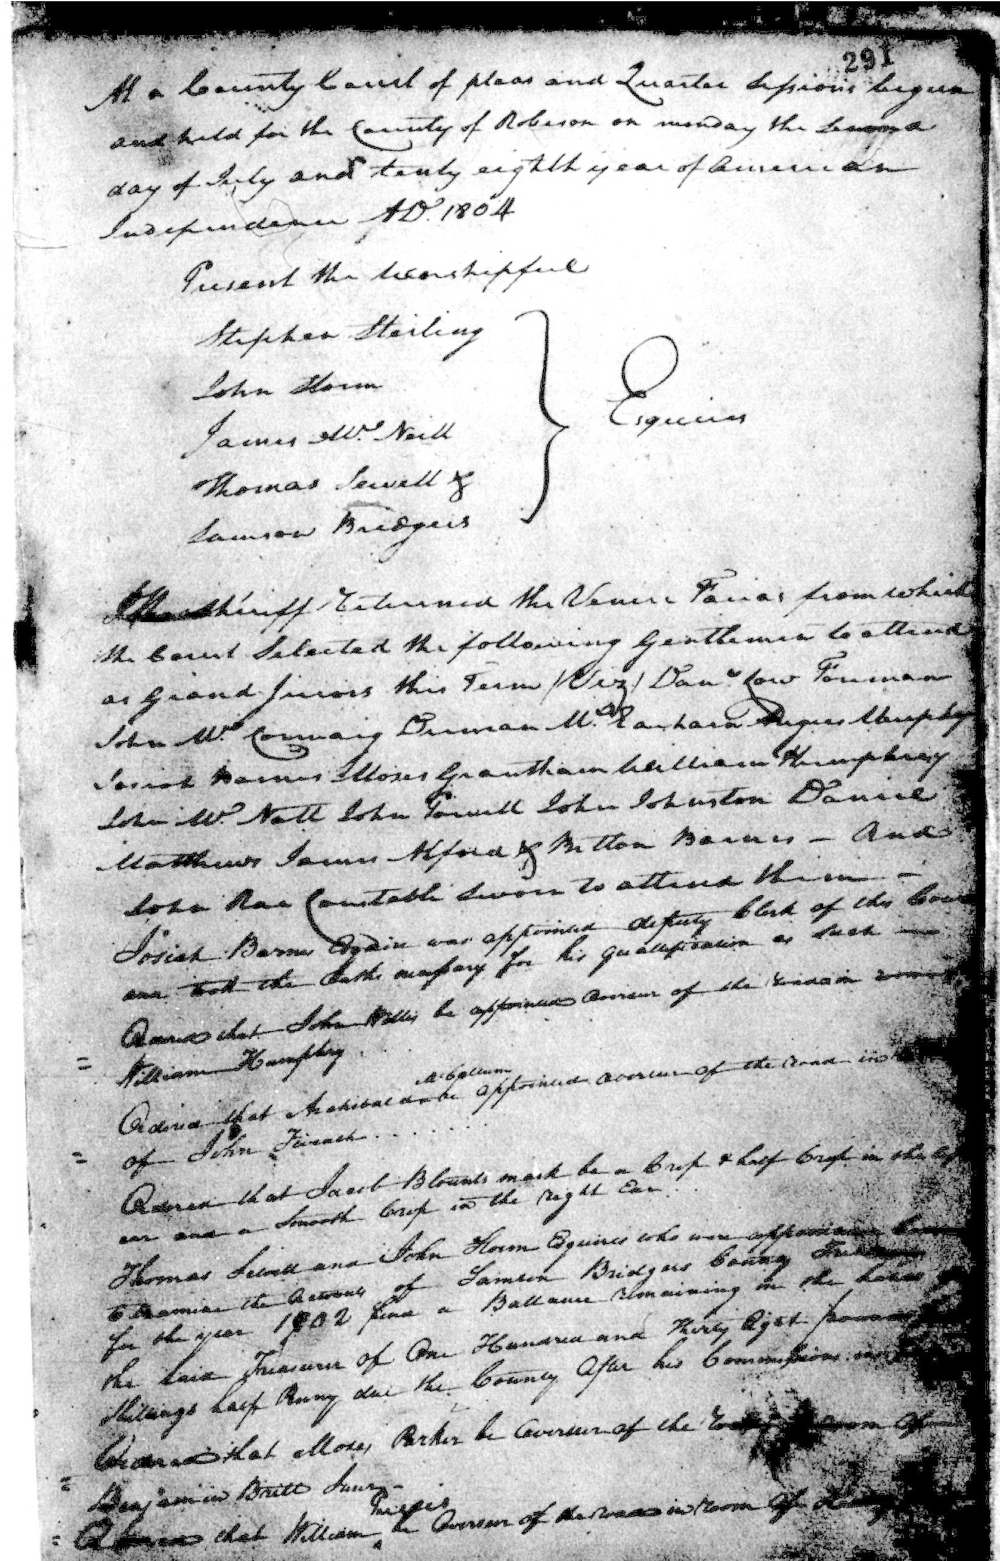 291
At a County Court of pleas and Quarter Sessions begun
and held for the County of Robeson on monday the Second
day of July and tenty eighth year of american
Independence AD. 1804
Present the Worshipful
Stephen Sterling
John Horn
James Mc Neill
Thomas Sewell &
Samson Bridgers
Esquires
Sheriff Returned the Venire Facias from which
the Court Selected the following Gentlemen to attend
as Grand Jurors this Term (Viz) Danl Cow Forman
John Mc Cormaig Duncan Mc Eachern Murphy
Josiah Barnes Moses Grantham William Humphrey
John Mc Natt John Powell John Johnston Daniel
Matthews James Alford & Britton Barnes - And
John Rae Constable Sworn to attend them -
Josiah Barnes Esquire was appointed deputy Clerk of this Court
and took the Oaths nessary for his qualification as Such -
= Ordered that John Willis be appointed overseer of the road in room
William Humphry
Ordered that Archibald McCallum be appointed overseer of the road in
= of John
Ordered that Jacob Blounts mark be a Crop & half Crop in the left
ear and a Smooth Crop in the right Ear
Thomas Sewell and John Horn Esquires who were appointed
to Examine the Accounts of Samson Bridgers County
for the year 1802 find a Ballance remaining in the hands
the said Treasurer of One Hundred and thirty Eight pounds
Shillings half Penny due the County After his Commissions
= Ordered that Moses Parker be overseer of the room of
Benjamin Britt Junr -
= Ordered that William be Overseer of the road in room of